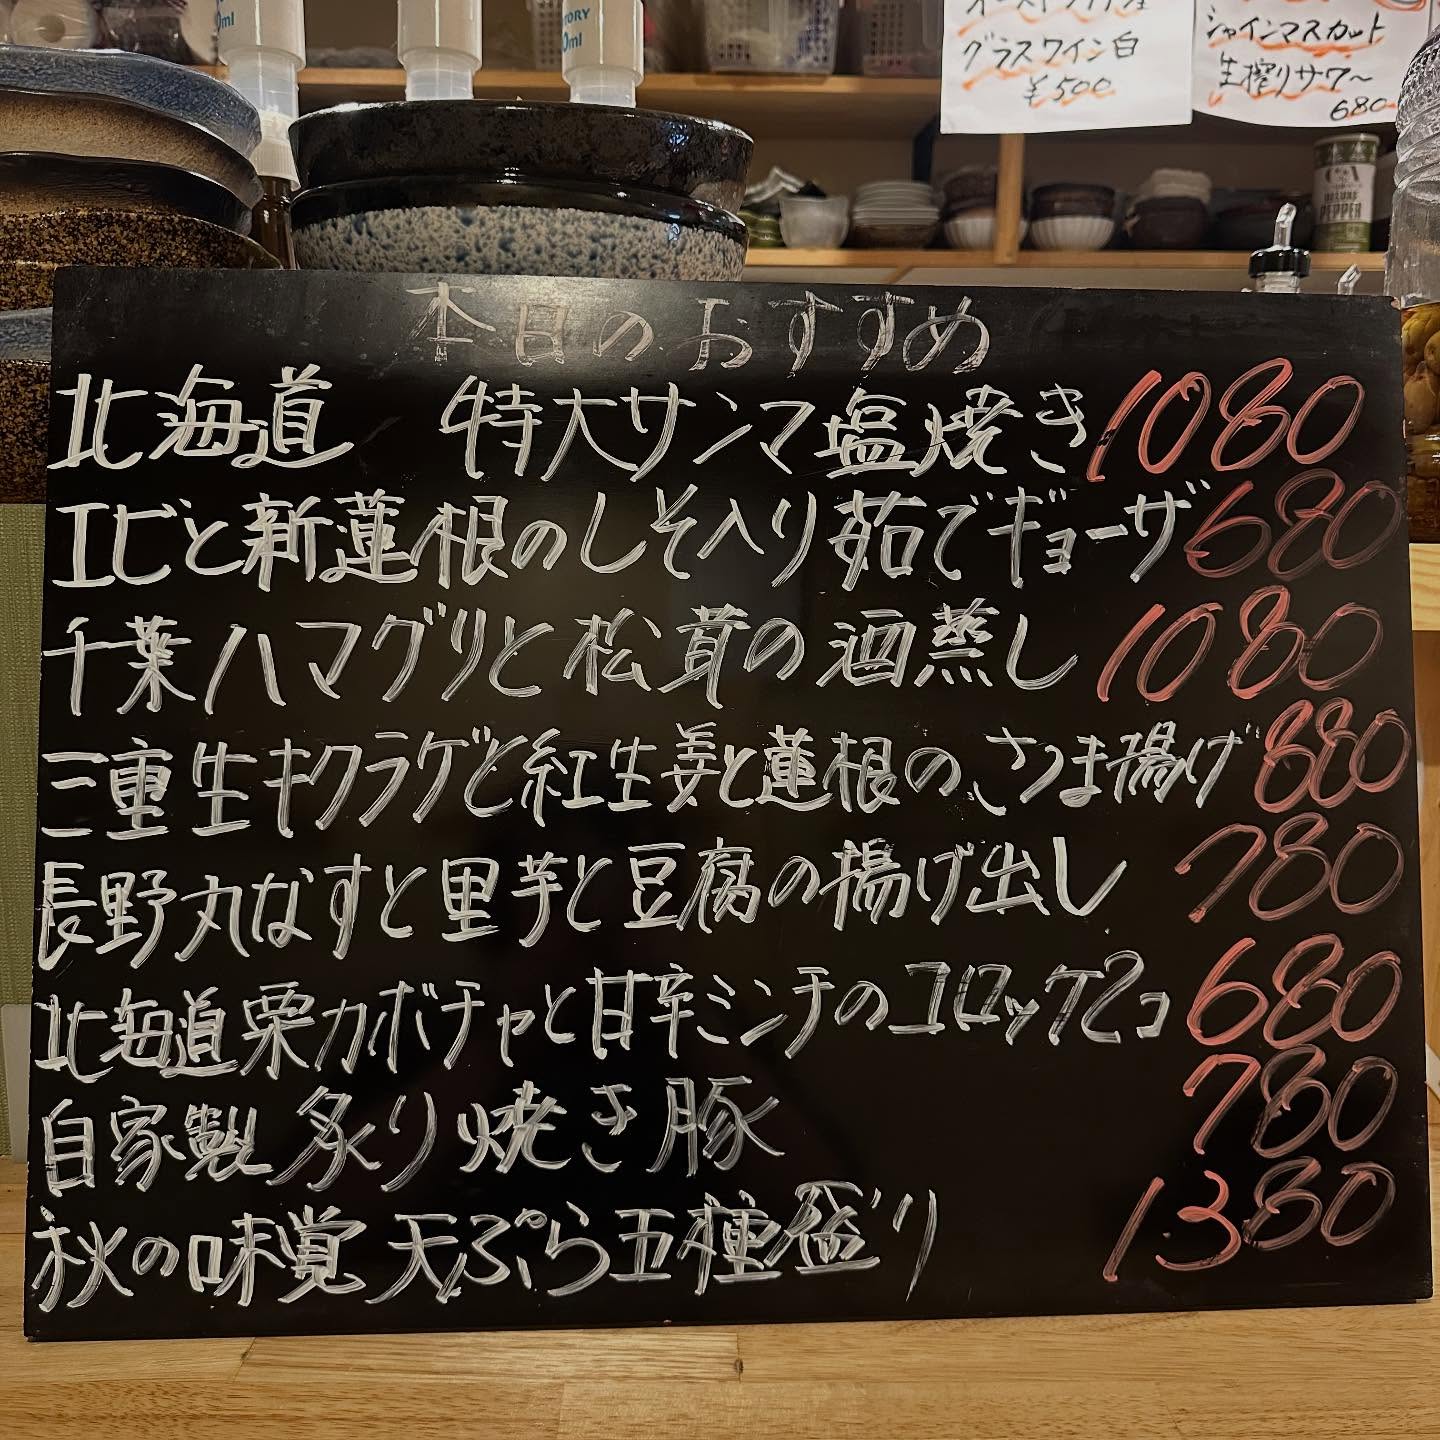 TORY
0ml
0ml
グラスワイン白
¥500
シャインマスカット
生搾りサワー
680
DELUXE
PEPPER
本日のおすすめ
北海道 特大サンマ塩焼き 1080
エビと新蓮根のしそ入り茹でギョーザ 680
千葉ハマグリと松茸の酒蒸し 1080
三重生キクラゲと紅生姜と蓮根の、さつま揚げ 880
長野丸なすと里芋と豆腐の揚げ出し 780
北海道栗カボチャと甘辛ミンチのコロッケ2コ 680
自家製炙り焼き豚 780
秋の味覚天ぷら五種盛り 1380